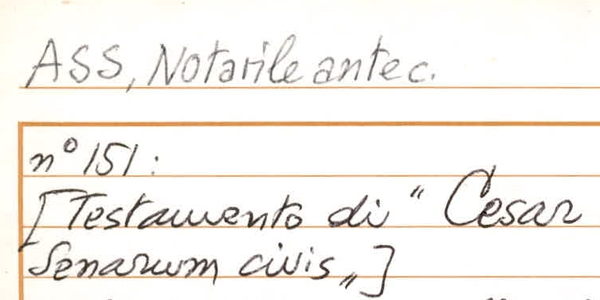 ASS, Notarile antec.
n° 151:
[Testamento di "Cesar
Senarum civis„]